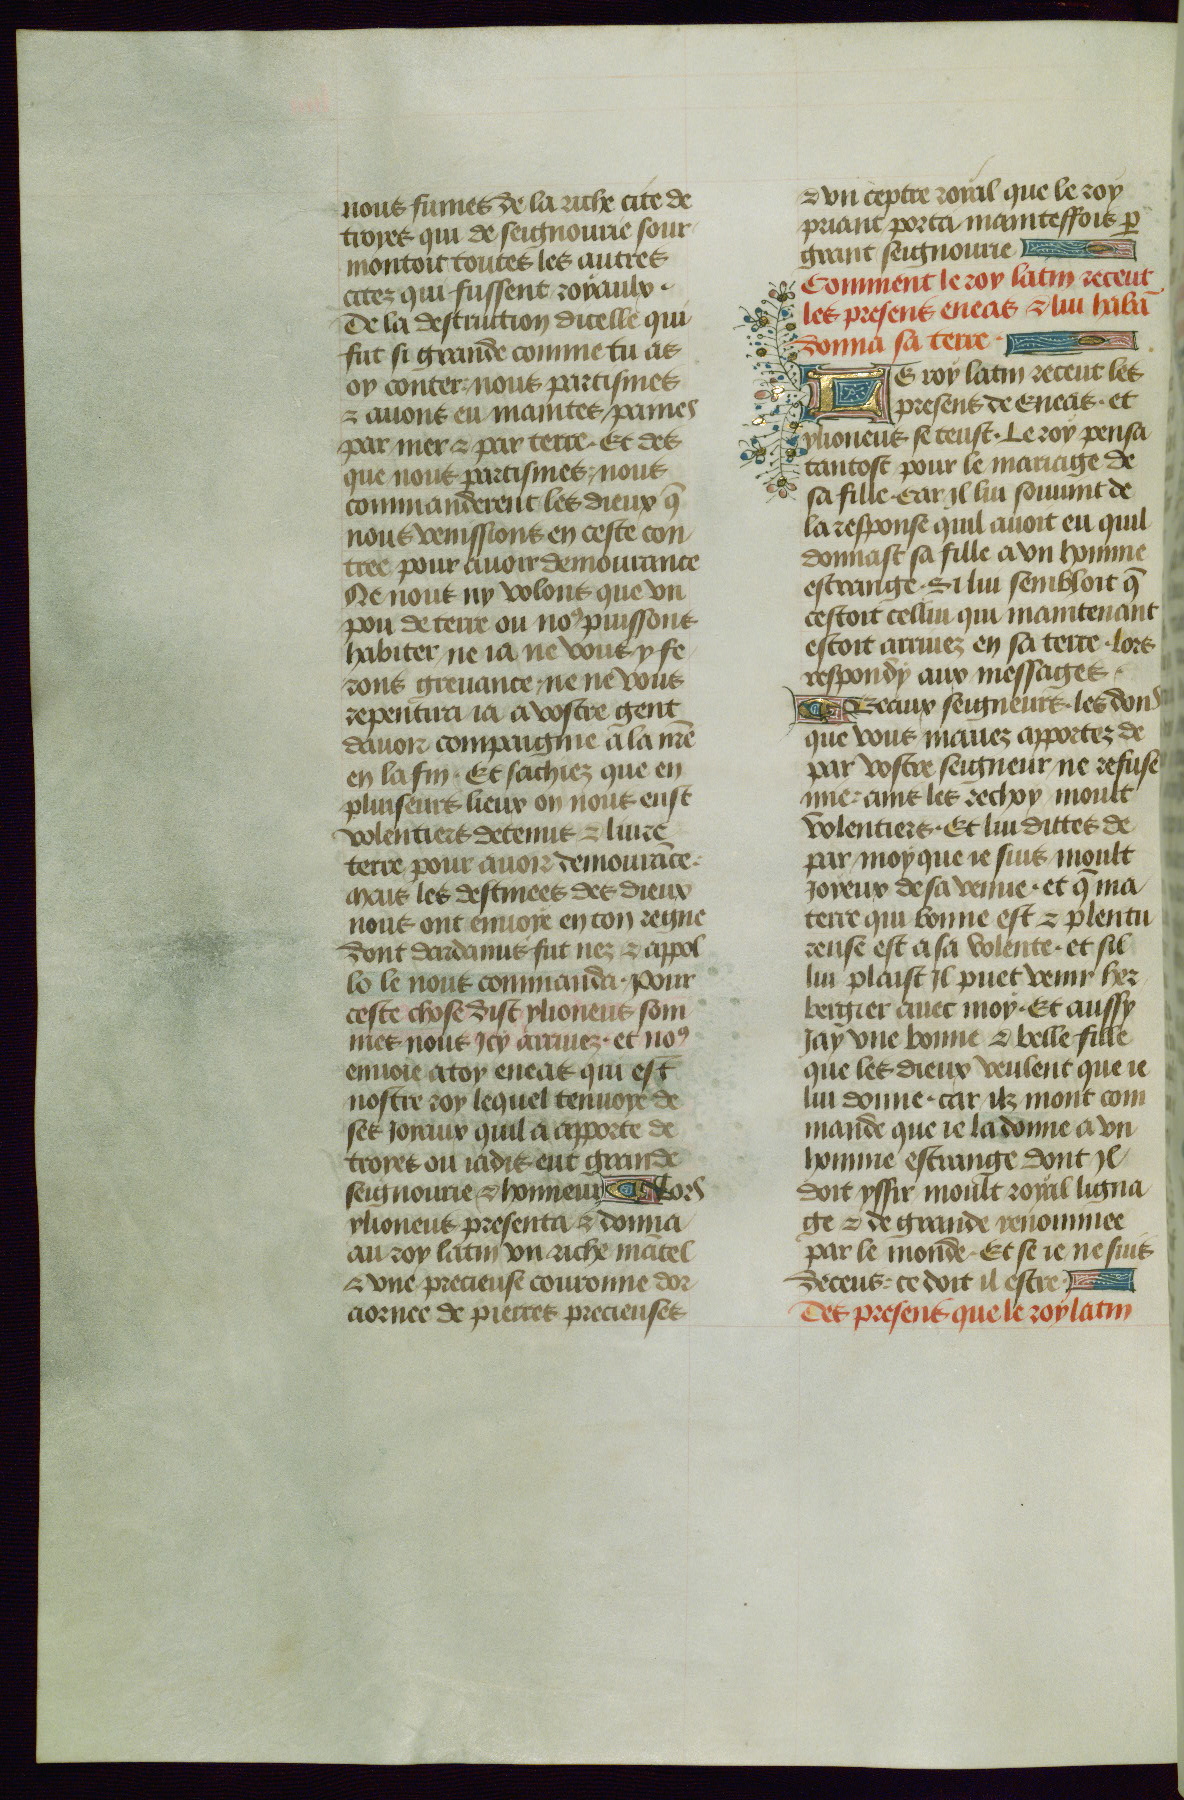 nous fumes de la riche cite de
troyes qui de seignourie sour
montoit toutes les autres
citez qui fussent royaulx .
De la destruction dicelle qui
fut si grande comme tu as
oy conter nous partismes
⁊ auons eu maintes paines
par mer ⁊ par terre . Et des
que nous partismes nous
commanderent les dieux q̄
nous venissions en ceste con
tree pour auoir demourance
Ne nous ny volons que vn
pou de terre ou noꝰ puissons
habiter ne ia ne vous y fe
rons greuance ne ne vous
repentira ia a vostre gent
dauoir compaignie a la nr̄e
en la fin . Et sachiez que en
pluiseurs lieux on nous eust
volentiers detenus ⁊ liure
terre pour auoir demourāce .
Mais les destinees des dieux
nous ont enuoye en ton regne
dont dardanus fut nez ⁊ appol
lo le nous commanda . Pour
ceste chose dist ylioneus som
mes nous Icy arriuez . et noꝰ
enuoie a toy eneas qui est
nostre roy lequel tenuoye de
ses Ioyaux quil a apporte de
troyes ou iadis eut grande
seignourie ⁊ honneur Lors
ylioneus presenta ⁊ donna
au roy latin vn riche mātel
⁊ vne precieuse couronne dor
aornee de pierres precieuses
⁊ vn ceptre royal que le roy
priant porta mainteffois ꝑ
grant seignourie
Comment le roy latin receut
les presens eneas ⁊ lui habā
donna sa terre .
LE roy latin receut les
presens de Eneas . et
ylioneus se teust . Le roy pensa
tantost pour le mariage de
sa fille . Car Il lui souuint de
la response quil auoit eu quil
donnast sa fille a vn homme
estrange . Si lui sembloit q̄
cestoit cellui qui maintenant
estoit arriuez en sa terre . lors
respondy aux messages .
Beaux seigneurs . les dons
que vous mauez apportez de
par vostre seigneur ne refuse
mie . ains les rechoy moult
volentiers . Et lui dittes de
par moy que ie suis moult
Ioyeux de sa venue . et q̄ ma
terre qui bonne est ⁊ plentu
reuse est a sa volente . et sil
lui plaist Il puet venir her
bergier auec moy . Et aussy
Iay vne bonne ⁊ belle fille
que les dieux veulent que ie
lui donne . car ilz mont com
mande que ie la donne a vn
homme estrange dont Il
doit yssir moult royal ligna
ge ⁊ de grande renommee
par le monde . Et se ie ne suis
deceus . ce doit il estre .
Des presens que le roy latin